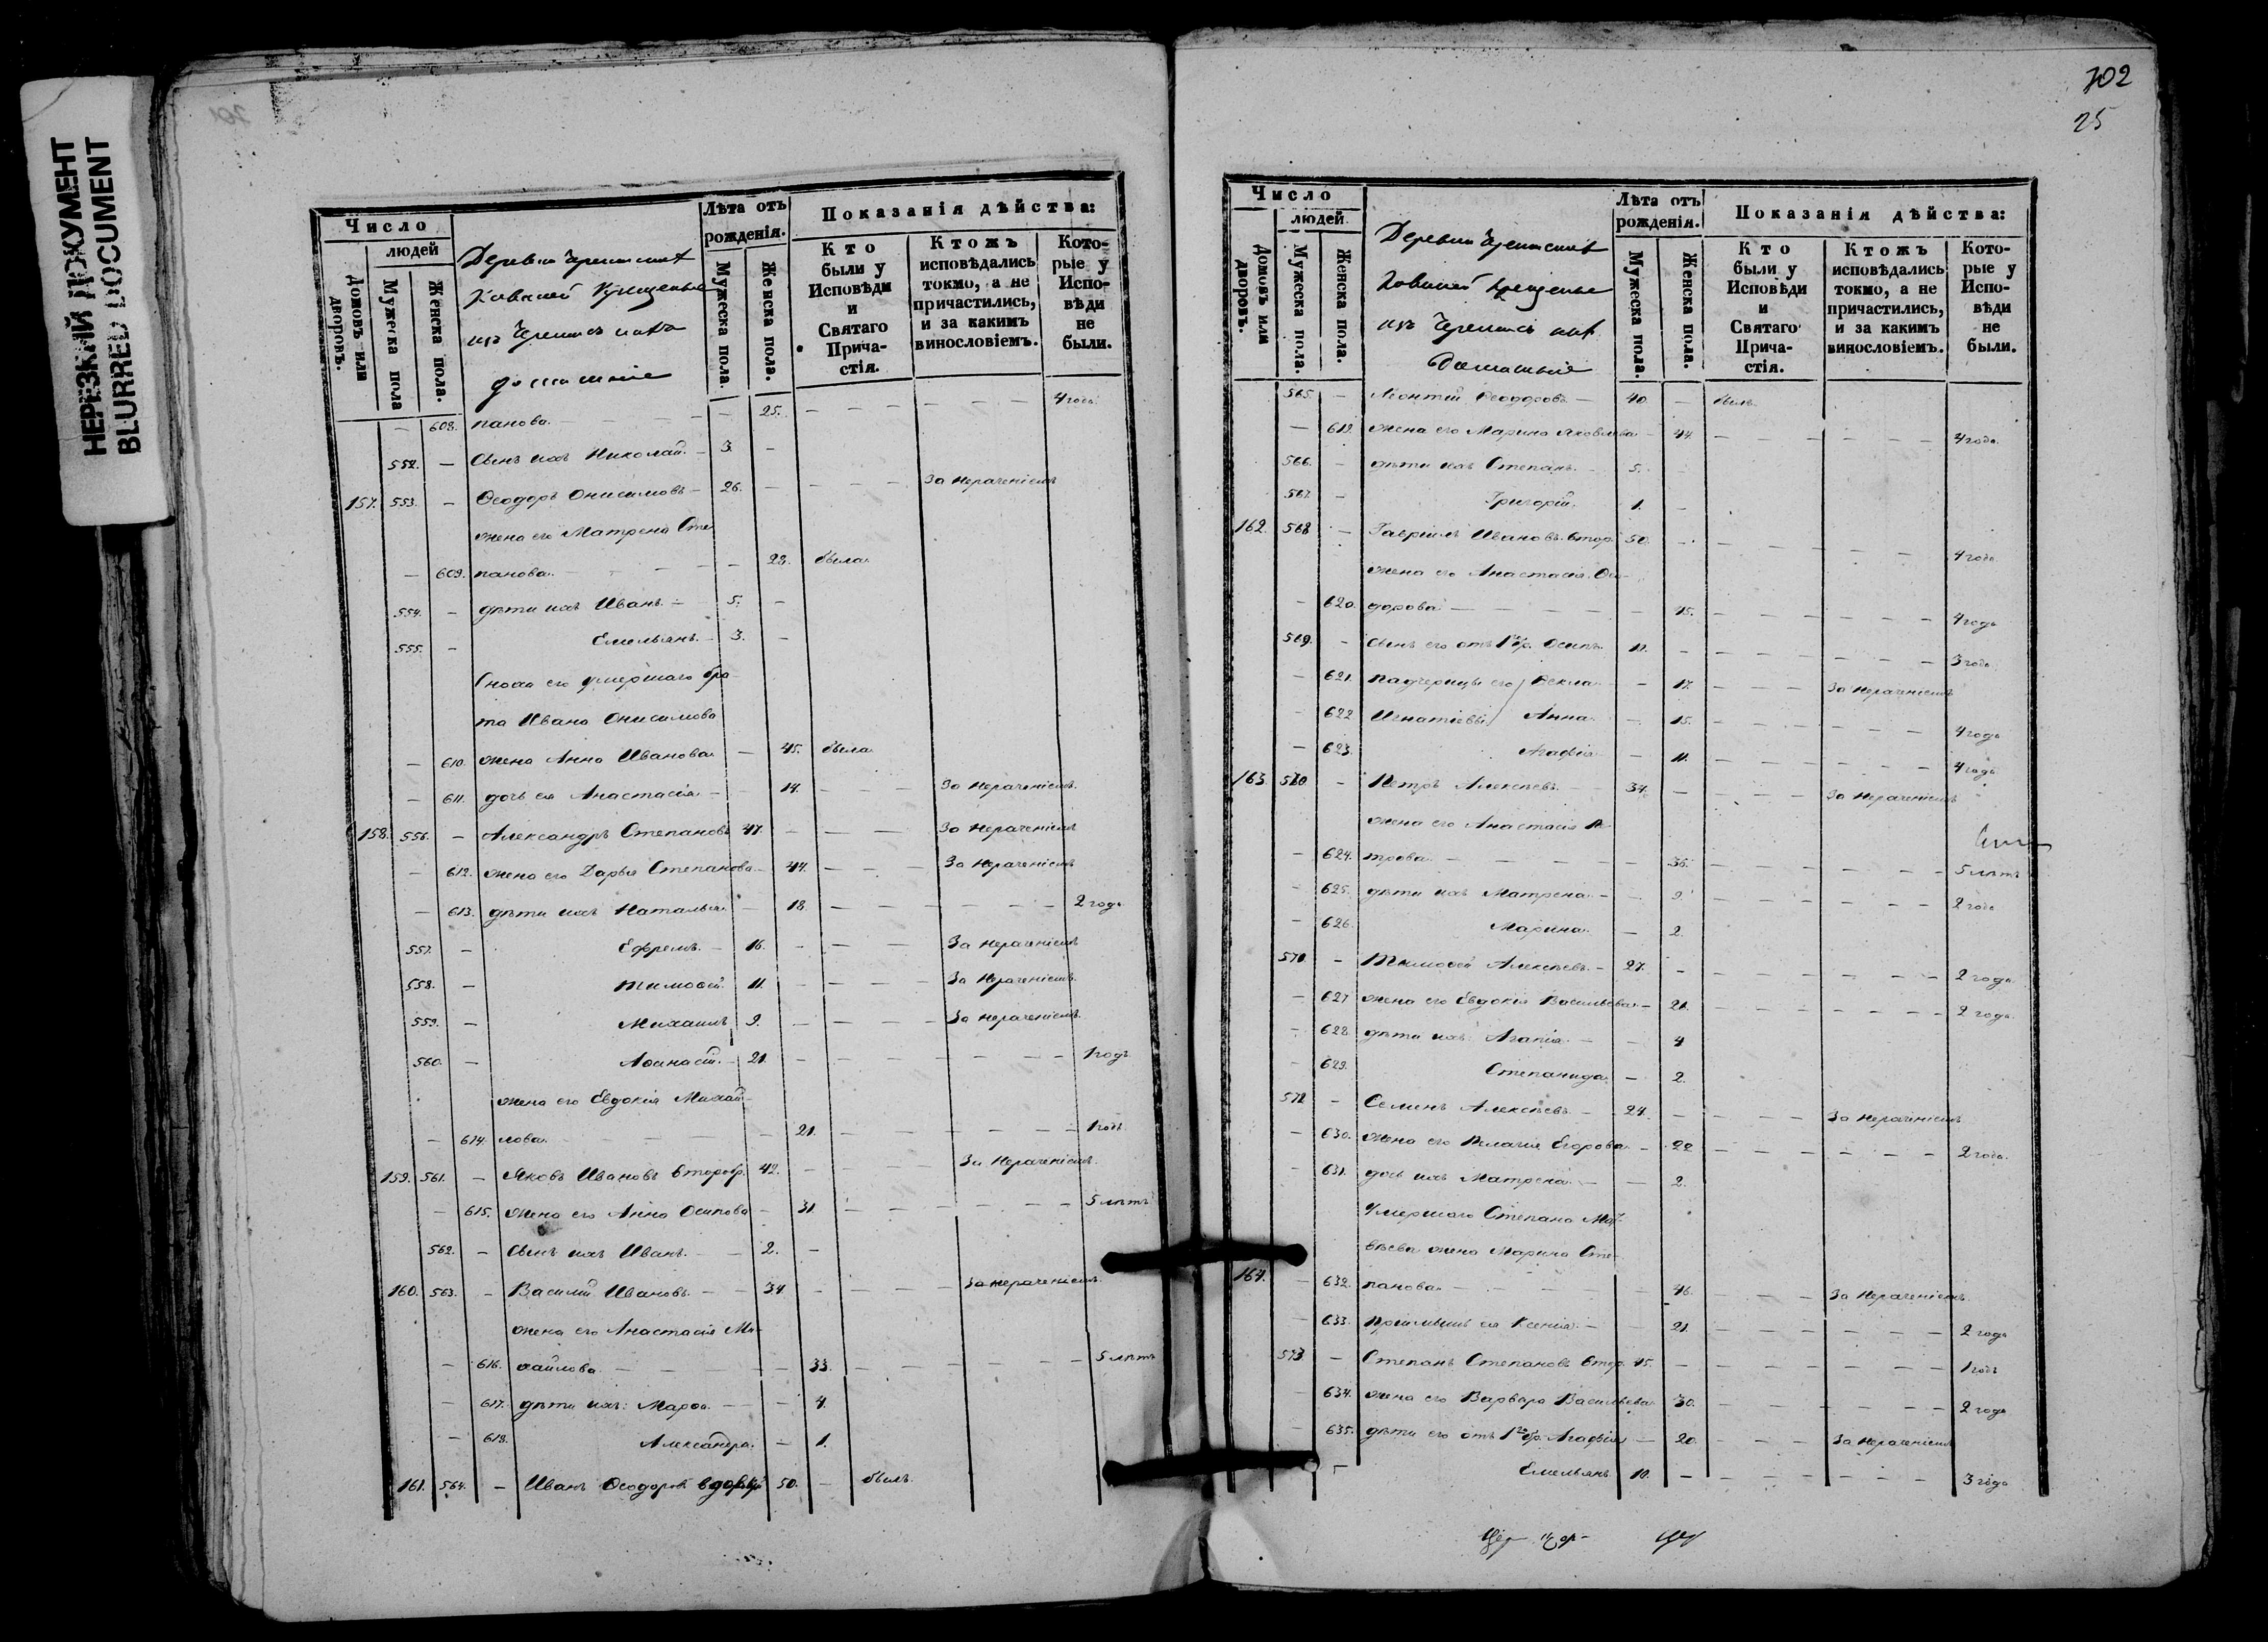 НЕРЕЗКИЙ ДОКУМЕНТ
BLURRED DOCUMENT
Число
людей
Домовъ или дворовъ.
Мужеска пола
Женска пола.
Деревни
изъ
домашніе
Лѣта отъ рожденія.
Мужеска пола.
Женска пола.
Показанія дѣйства:
Кто были у Исповѣди и Святаго Прича- стія.
Ктожъ исповѣдались токмо, а не причастились, и за какимъ винословіемъ.
Кото- рые у Испо- вѣди не были.
— 608. панова — — 25. — — — — — — 4 года
552. — Сынъ ихъ Николай. — 3. —
157. 553. — Ѳеодоръ Онисимовъ — 26. — — — — За нераченіемъ
жена его Матрена Сте
— 609. панова — — — — 28. была
554. — дѣти ихъ Иванъ — 5. —
555. — Емельянъ — 3. —
Сноха его умершаго бра-
та Ивана Онисимова
— 610. жена Анна Иванова — 45. была
— 611. дочь ея Анастасія — 14. — — — За нераченіемъ.
158. 556. — Александръ Степановъ 47. — — — За нераченіемъ
— 612. жена его Дарья Степанова — 44. — — — За нераченіемъ
— 613. дѣти ихъ Наталья — 18. — — — — — — 2 года
557. — Ефремъ. — 16. — — — За нераченіемъ
558. — Тимоѳей 11. — — — За нераченіемъ.
559. — Михаилъ 9. — — — За нераченіемъ.
560. — Аѳанасій. — 21. — — — — — — 1 годъ
жена его Евдокія Михай-
— 614. лова — — — — 21. — — — — — — 1 годъ
159. 561. — Яковъ Ивановъ второбр. 42. — — — За нераченіемъ.
— 615. жена его Анна Осипова — 31. — — — — — — 5 лѣтъ
562. — Сынъ ихъ Иванъ. — 2. —
160. 563. — Василій Ивановъ — 34. — — — За нераченіемъ.
жена его Анастасія Ми-
— 616. хайлова — — — — 33. — — — — — 5 лѣтъ
— 617. дѣти ихъ: Марѳа — — 4.
— 618. Александра. — 1.
161. 564. — Иванъ Ѳеодоровъ 50. — былъ
702
25
Число
людей
Домовъ или дворовъ.
Мужеска пола.
Женска пола.
Деревни
изъ
Домашніе
Лѣта отъ рожденія.
Мужеска пола.
Женска пола.
Показанія дѣйства:
Кто были у Исповѣди и Святаго Прича- стія.
Ктожъ исповѣдались токмо, а не причастились, и за какимъ винословіемъ.
Кото- рые у Испо- вѣди не были.
565. — Леонтій Ѳеодоровъ — 40. — былъ
— 619. жена его Марина Яковлева — 44. — — — — — — 4 года.
566. — дѣти ихъ Степанъ — 5. —
567. — Григорій. 1. —
162. 568 — Гавріилъ Ивановъ втор. 50. — — — — — — 4 года
жена его Анастасія Ѳео-
— 620. дорова — — — — 45. — — — — — — 4 года
569. — Сынъ его отъ 1 бр. Осипъ 11. — — — — — — 3 года.
— 621. падчерицы его Ѳекла — — 17. — — — За нераченіемъ
— 622 Игнатіевы Анна — — 15. — — — — — — 4 года
— 623. Агафія — 11. — — — — — — 4 года.
163. 570. — Петръ Алексѣевъ — 34. — — — — За нераченіемъ
жена его Анастасія Пе-
— 624. трова — — — — — 35. — — — — — — 5 лѣтъ
— 625. дѣти ихъ Матрена — — 9. — — — — — — 2 года
— 626. Марина — 2.
571. — Тимоѳей Алексѣевъ — 27. — — — — — — 2 года.
— 627 жена его Евдокія Васильева — 21. — — — — — — 2 года.
— 628. дѣти ихъ: Агапія — — 4
— 629. Степанида — 2.
572 — Семенъ Алексѣевъ — 24. — — — — За нераченіемъ
— 630. жена его Пелагія Егорова — 22 — — — — — — 2 года.
— 631. дочь ихъ Матрена — — 2.
Умершаго Степана Мат-
вѣева жена Марина Сте-
164. — 632. панова — — — — 46. — — — За нераченіемъ.
— 633. ея Ксенія — — 21. — — — — — — 2 года
573 — Степанъ Степановъ втор. 45. — — — — — — 1 годъ
— 634. жена его Варвара Васильева 30. — — — — — — 2 года
— 635. дѣти его отъ 1 бр. Агафія — 20. — — — За нераченіемъ
Емельянъ 10. — — — — — — — 3 года